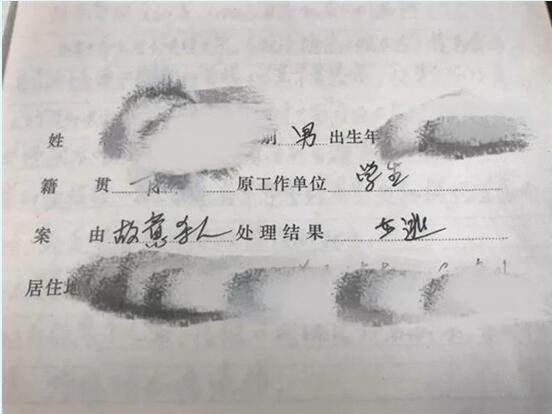 姓 别 男 出生年
籍贯 原工作单位 学生
案由 故意杀人 处理结果 在逃
居住地